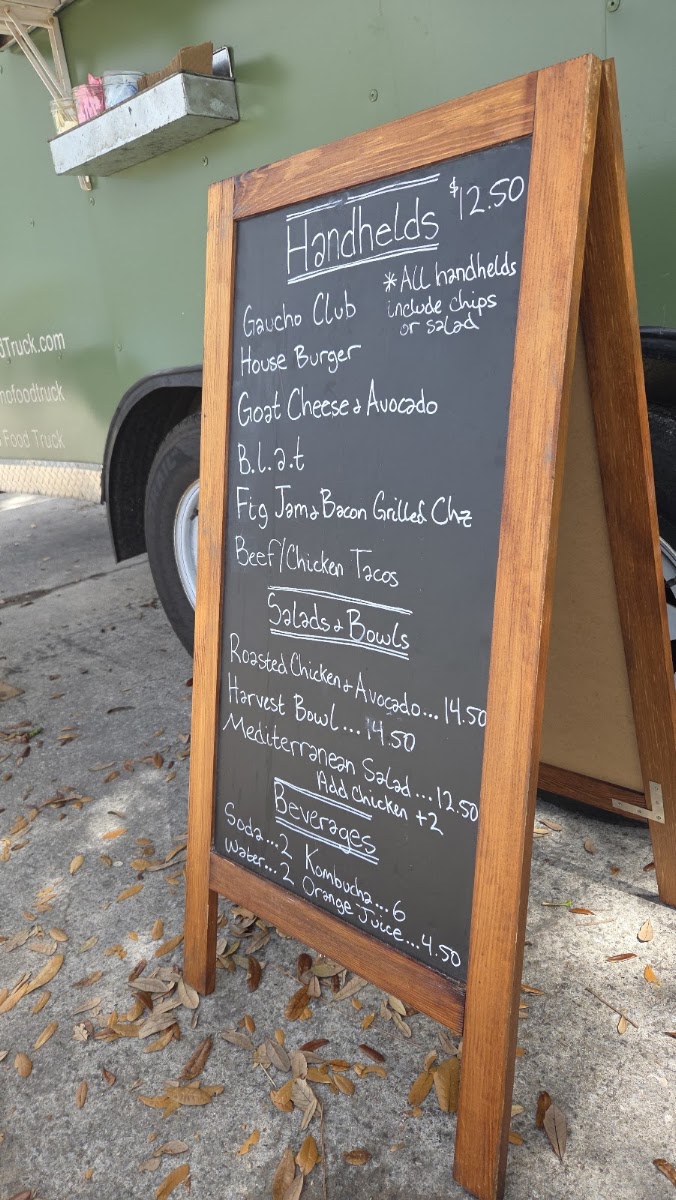 Handhelds $12.50
*All handhelds
include chips
or salad
Gaucho Club
House Burger
Goat Cheese & Avocado
B.l.a.t
Fig Jam & Bacon Grilled Chz
Beef/Chicken Tacos
Salads & Bowls
Roasted Chicken & Avocado...14.50
Harvest Bowl...14.50
Mediterranean Salad...12.50
Add chicken +2
Beverages
Soda...2 Kombucha...6
Water...2 Orange Juice...4.50
Truck.com
ofoodtruck
Food Truck